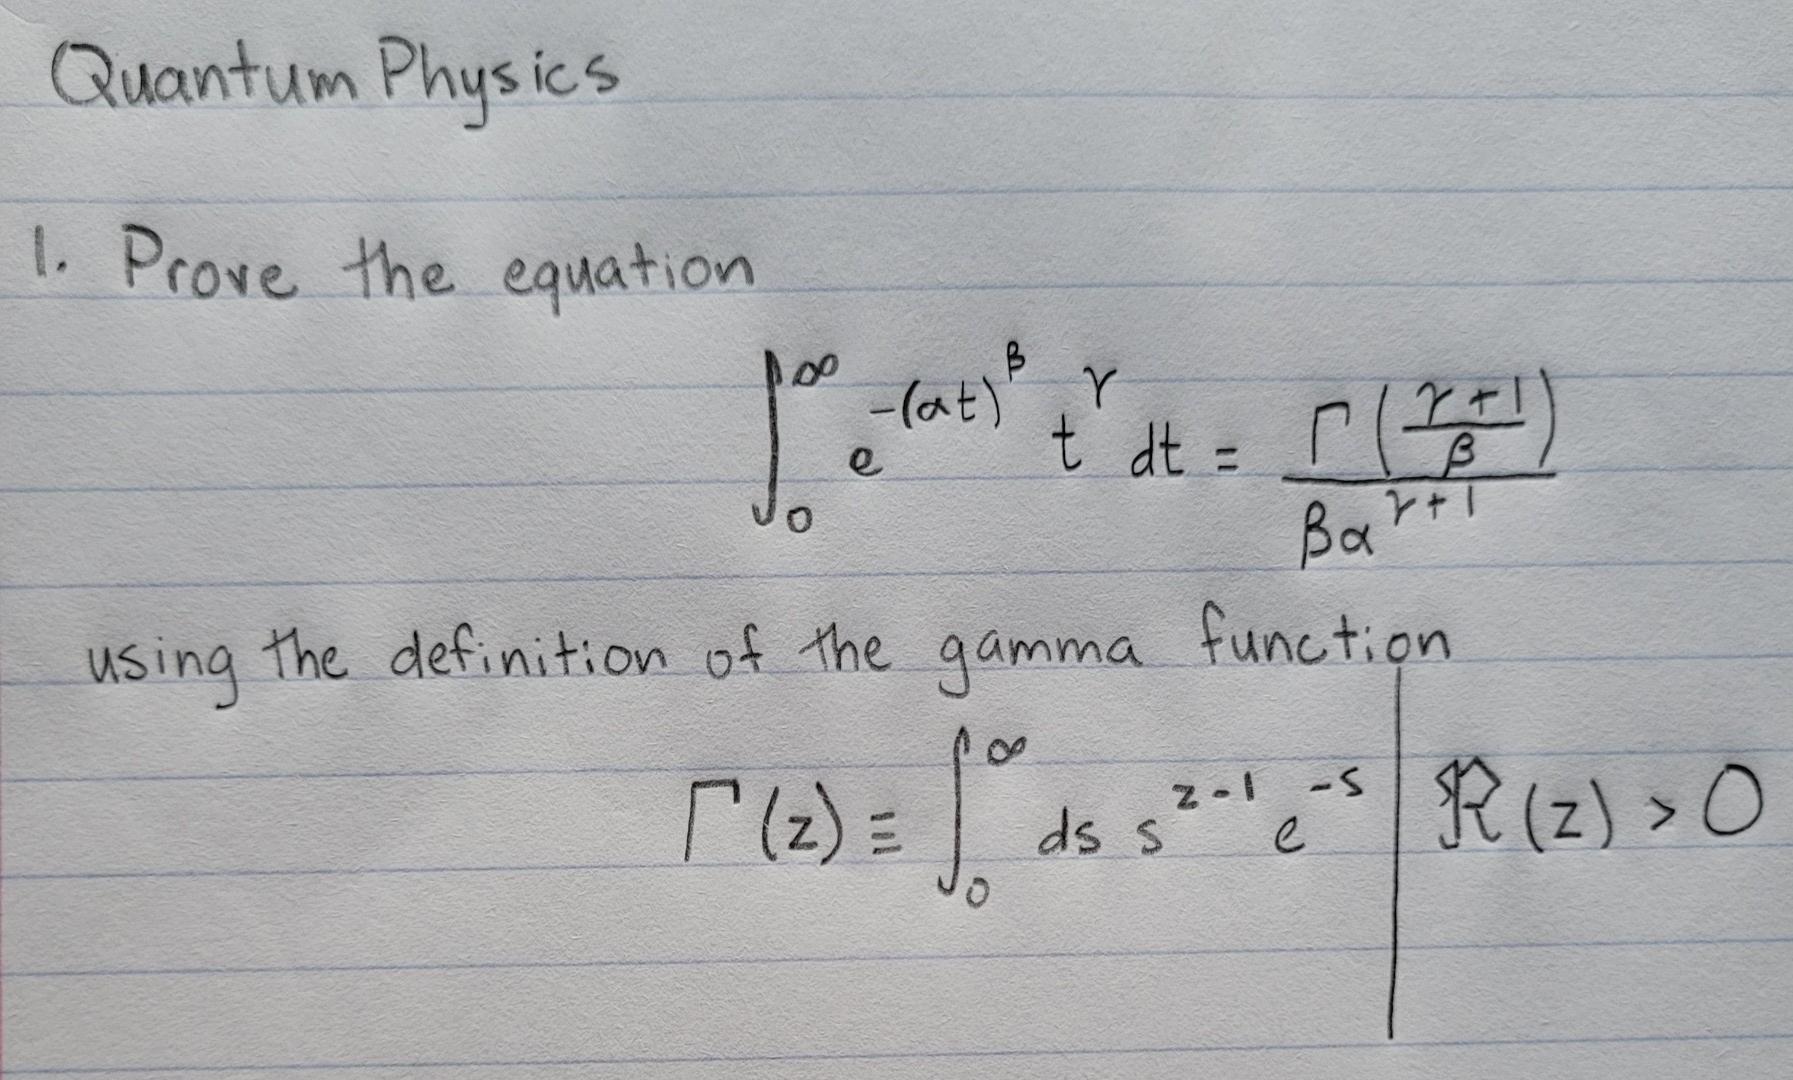 Quantum Physics
1. Prove the equation
∫₀^∞ e^{-(αt)^β} t^γ dt = Γ((γ+1)/β) / (βα^{γ+1})
using the definition of the gamma function
Γ(z) ≡ ∫₀^∞ ds s^{z-1} e^{-s} | ℜ(z) > 0